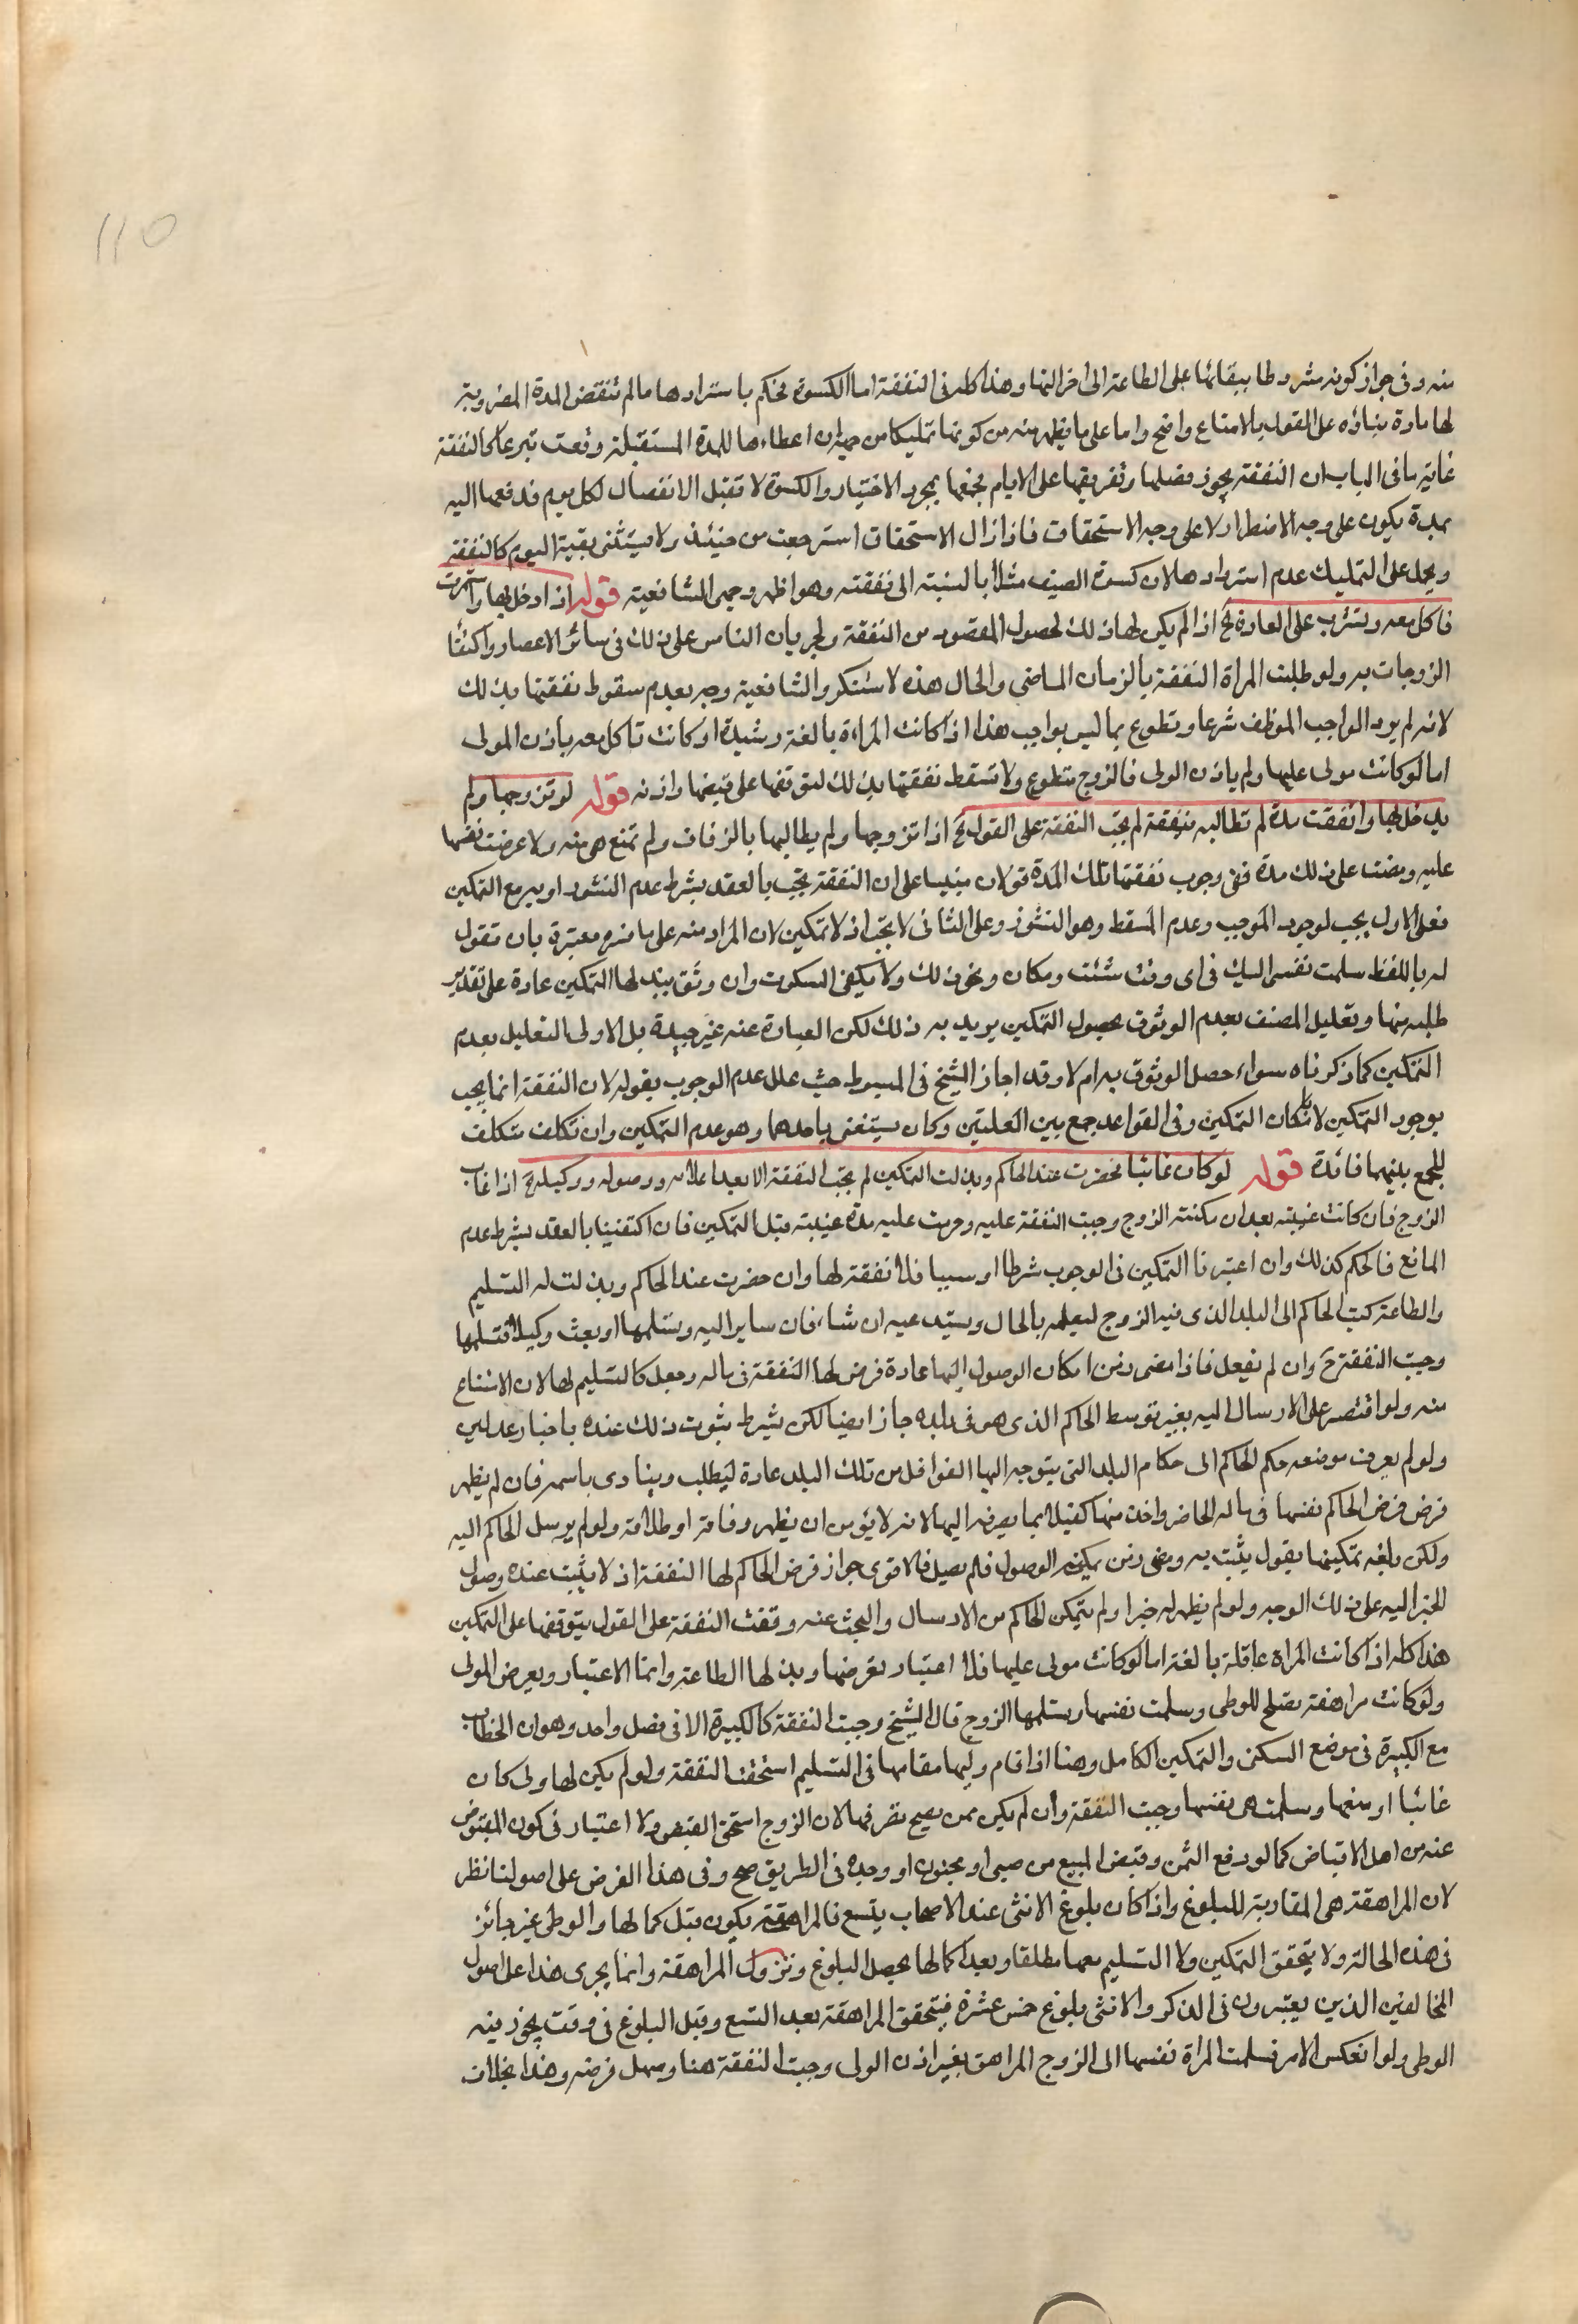 110
منه وفي جواز كونه مشروطا ببقائها على الطاعة الى اخر النهار وهذا كله في النفقة اما الكسوة فحكم باستردادها ما لم تنقض المدة المضروبة
لها عادة بناؤه على القول بالامتاع واضح واما على ما يظهر منه من كونها تمليكا من حيث ان اعطاءها للمدة المستقبلة وقعت تبرعا كالنفقة
غاية ما في الباب ان النفقة يجوز فصلها وتفريقها على الايام فجمعها بمجرد الاختيار والكسوة لا تقبل الانفصال لكل يوم فدفعها اليه
لمدة يكون على وجه الاضطرار لا على وجه الاستحقاق فاذا زال الاستحقاق استرجعت من حينئذ ولا يستثنى بقية اليوم كالنفقة
ويحتمل على التمليك عدم استردادها لان كسوة الصيف مثلا بالنسبة الى نفقته وهو اظهر وجهي الشافعية قوله اذا دخل بها واستمرت
تاكل معه وتشرب على العادة لخ اذا لم يكن لها ذلك لحصول المقصود من النفقة ولجريان الناس على ذلك في سائر الاعصار واكتفا
الزوجات به ولو طلبت المراة النفقة بالزمان الماضي والحال هذه لاستنكر وللشافعية وجه بعدم سقوط نفقتها بذلك
لانه لم يود الواجب الموظف شرعا وتطوع بما ليس بواجب هذا اذا كانت المراة بالغة رشيدة او كانت تاكل معه باذن المولى
اما لو كانت مولى عليها ولم ياذن الولى فالزوج متطوع ولا تسقط نفقتها بذلك لتوقفها على قبضها واذنه قوله لو تزوجها ولم
يدخل بها وانقضت مدة لم تطالبه بنفقة لم يجب النفقة على القول لخ اذا تزوجها ولم يطالبها بالزفاف ولم تمتنع هي منه ولا عرضت نفسها
عليه ومضت على ذلك مدة ففي وجوب نفقتها تلك المدة قولان مبنيا على ان النفقة يجب بالعقد بشرط عدم النشوز او به مع التمكين
فعلى الاول يجب لوجود الموجب وعدم المسقط وهو النشوز وعلى الثاني لا يجب اذ لا تمكين لان المراد منه على ما صرح معتبره بان تقول
له باللفظ سلمت نفسي اليك في اى وقت شئت ومكان ونحو ذلك ولا يكفى السكوت وان وثق ببذلها التمكين عادة على تقدير
طلبه منها وتعليل المصنف بعدم الوثوق بحصول التمكين يريد به ذلك لكن العبارة عنه غير جيدة بل الاولى التعليل بعدم
التمكين كما ذكرناه سواء حصل الوثوق به ام لا وقد اجاز الشيخ في المبسوط حيث علل عدم الوجوب بقوله لان النفقة انما يجب
بوجود التمكين لا بامكان التمكين وفي القواعد جمع بين العلتين وكان يستغنى باحدهما وهو عدم التمكين وان تكلف متكلف
للجمع بينهما فائدة قوله لو كان غائبا فحضرت عند الحاكم وبذلت التمكين لم يجب النفقة الا بعد اعلامه ووصوله ووكيله لخ اذا غاب
الزوج فان كانت غيبته بعد ان مكنته الزوج وجبت النفقة عليه وجرت عليه مدة غيبته قبل التمكين فان اكتفينا بالعقد بشرط عدم
المانع فالحكم كذلك وان اعتبرنا التمكين في الوجوب شرطا او سببا فلا نفقة لها وان حضرت عند الحاكم وبذلت له التسليم
والطاعة كتب الحاكم الى البلد الذي فيه الزوج ليعلمه بالحال ويستدعيه ان شاء فان سار اليه وتسلمها او بعث وكيلا فتسلمها
وجبت النفقة ح وان لم يفعل فاذا مضى زمن امكان الوصول اليها عادة فرض لها النفقة في ماله وجعل كالتسليم لها لان الامتناع
منه ولو اقتصر على الارسال اليه بغير توسط الحاكم الذي هو في بلده جاز ايضا لكن بشرط ثبوت ذلك عنده باخبار عدلين
ولو لم يعرف موضعه حكم الحاكم الى حكام البلد التي يتوجه اليها القوافل من تلك البلد عادة ليطلب وينادى باسمه فان لم يظهر
فرض فرض الحاكم نفقتها في ماله الحاضر واخذ منها كفيلا بما يصرف اليها لانه لا يؤمن ان يظهر وفاته او طلاقه ولو لم يرسل الحاكم اليه
ولكن بلغه تمكينها بقول يثبت به ومضى زمن يمكنه الوصول فلم يصل فالاقوى جواز فرض الحاكم لها النفقة اذ لا يثبت عنده وصول
الخبر اليه على ذلك الوجه ولو لم يظهر له خبرا ولم يتمكن الحاكم من الارسال والبحث عنه وقفت النفقة على القول بتوقفها على التمكين
هذا كله اذا كانت المراة عاقلة بالغة اما لو كانت مولى عليها فلا اعتبار بعرضها وبذلها الطاعة وانما الاعتبار وبعرض المولى
ولو كانت مراهقة تصلح للوطى وسلمت نفسها وتسلمها الزوج قال الشيخ وجبت النفقة كالكبيرة الا في فصل واحد وهو ان الخطاب
مع الكبيرة في موضع السكنى والتمكين الكامل وهنا اذا قام وليها مقامها في التسليم استحقت النفقة ولو لم يكن لها ولى كان
غائبا او منعها وسلمت هي نفسها وجبت النفقة وان لم يكن ممن يصح تصرفها لان الزوج استحق القبض ولا اعتبار في كون المقبوض
عنه من اهل الاقباض كما لو دفع الثمن وقبض المبيع من صبي او مجنون او وجده في الطريق صح وفي هذا الفرض على اصولنا نظر
لان المراهقة هي المقاربة للبلوغ واذا كان بلوغ الانثى عند الاصحاب بتسع فالمراهقة يكون قبل كمالها والوطى غير جائز
في هذه الحالة ولا يتحقق التمكين ولا التسليم معها مطلقا وبعد اكمالها يحصل البلوغ وتزول المراهقة وانما يجرى هذا على اصول
المخالفين الذين يعتبرون في الذكر والانثى بلوغ خمس عشرة فيتحقق المراهقة بعد التسع وقبل البلوغ في وقت يجوز فيه
الوطى ولو انعكس الامر فسلمت المراة نفسها الى الزوج المراهق بغير اذن الولى وجبت النفقة هنا وسهل فرضه وهذا بخلاف